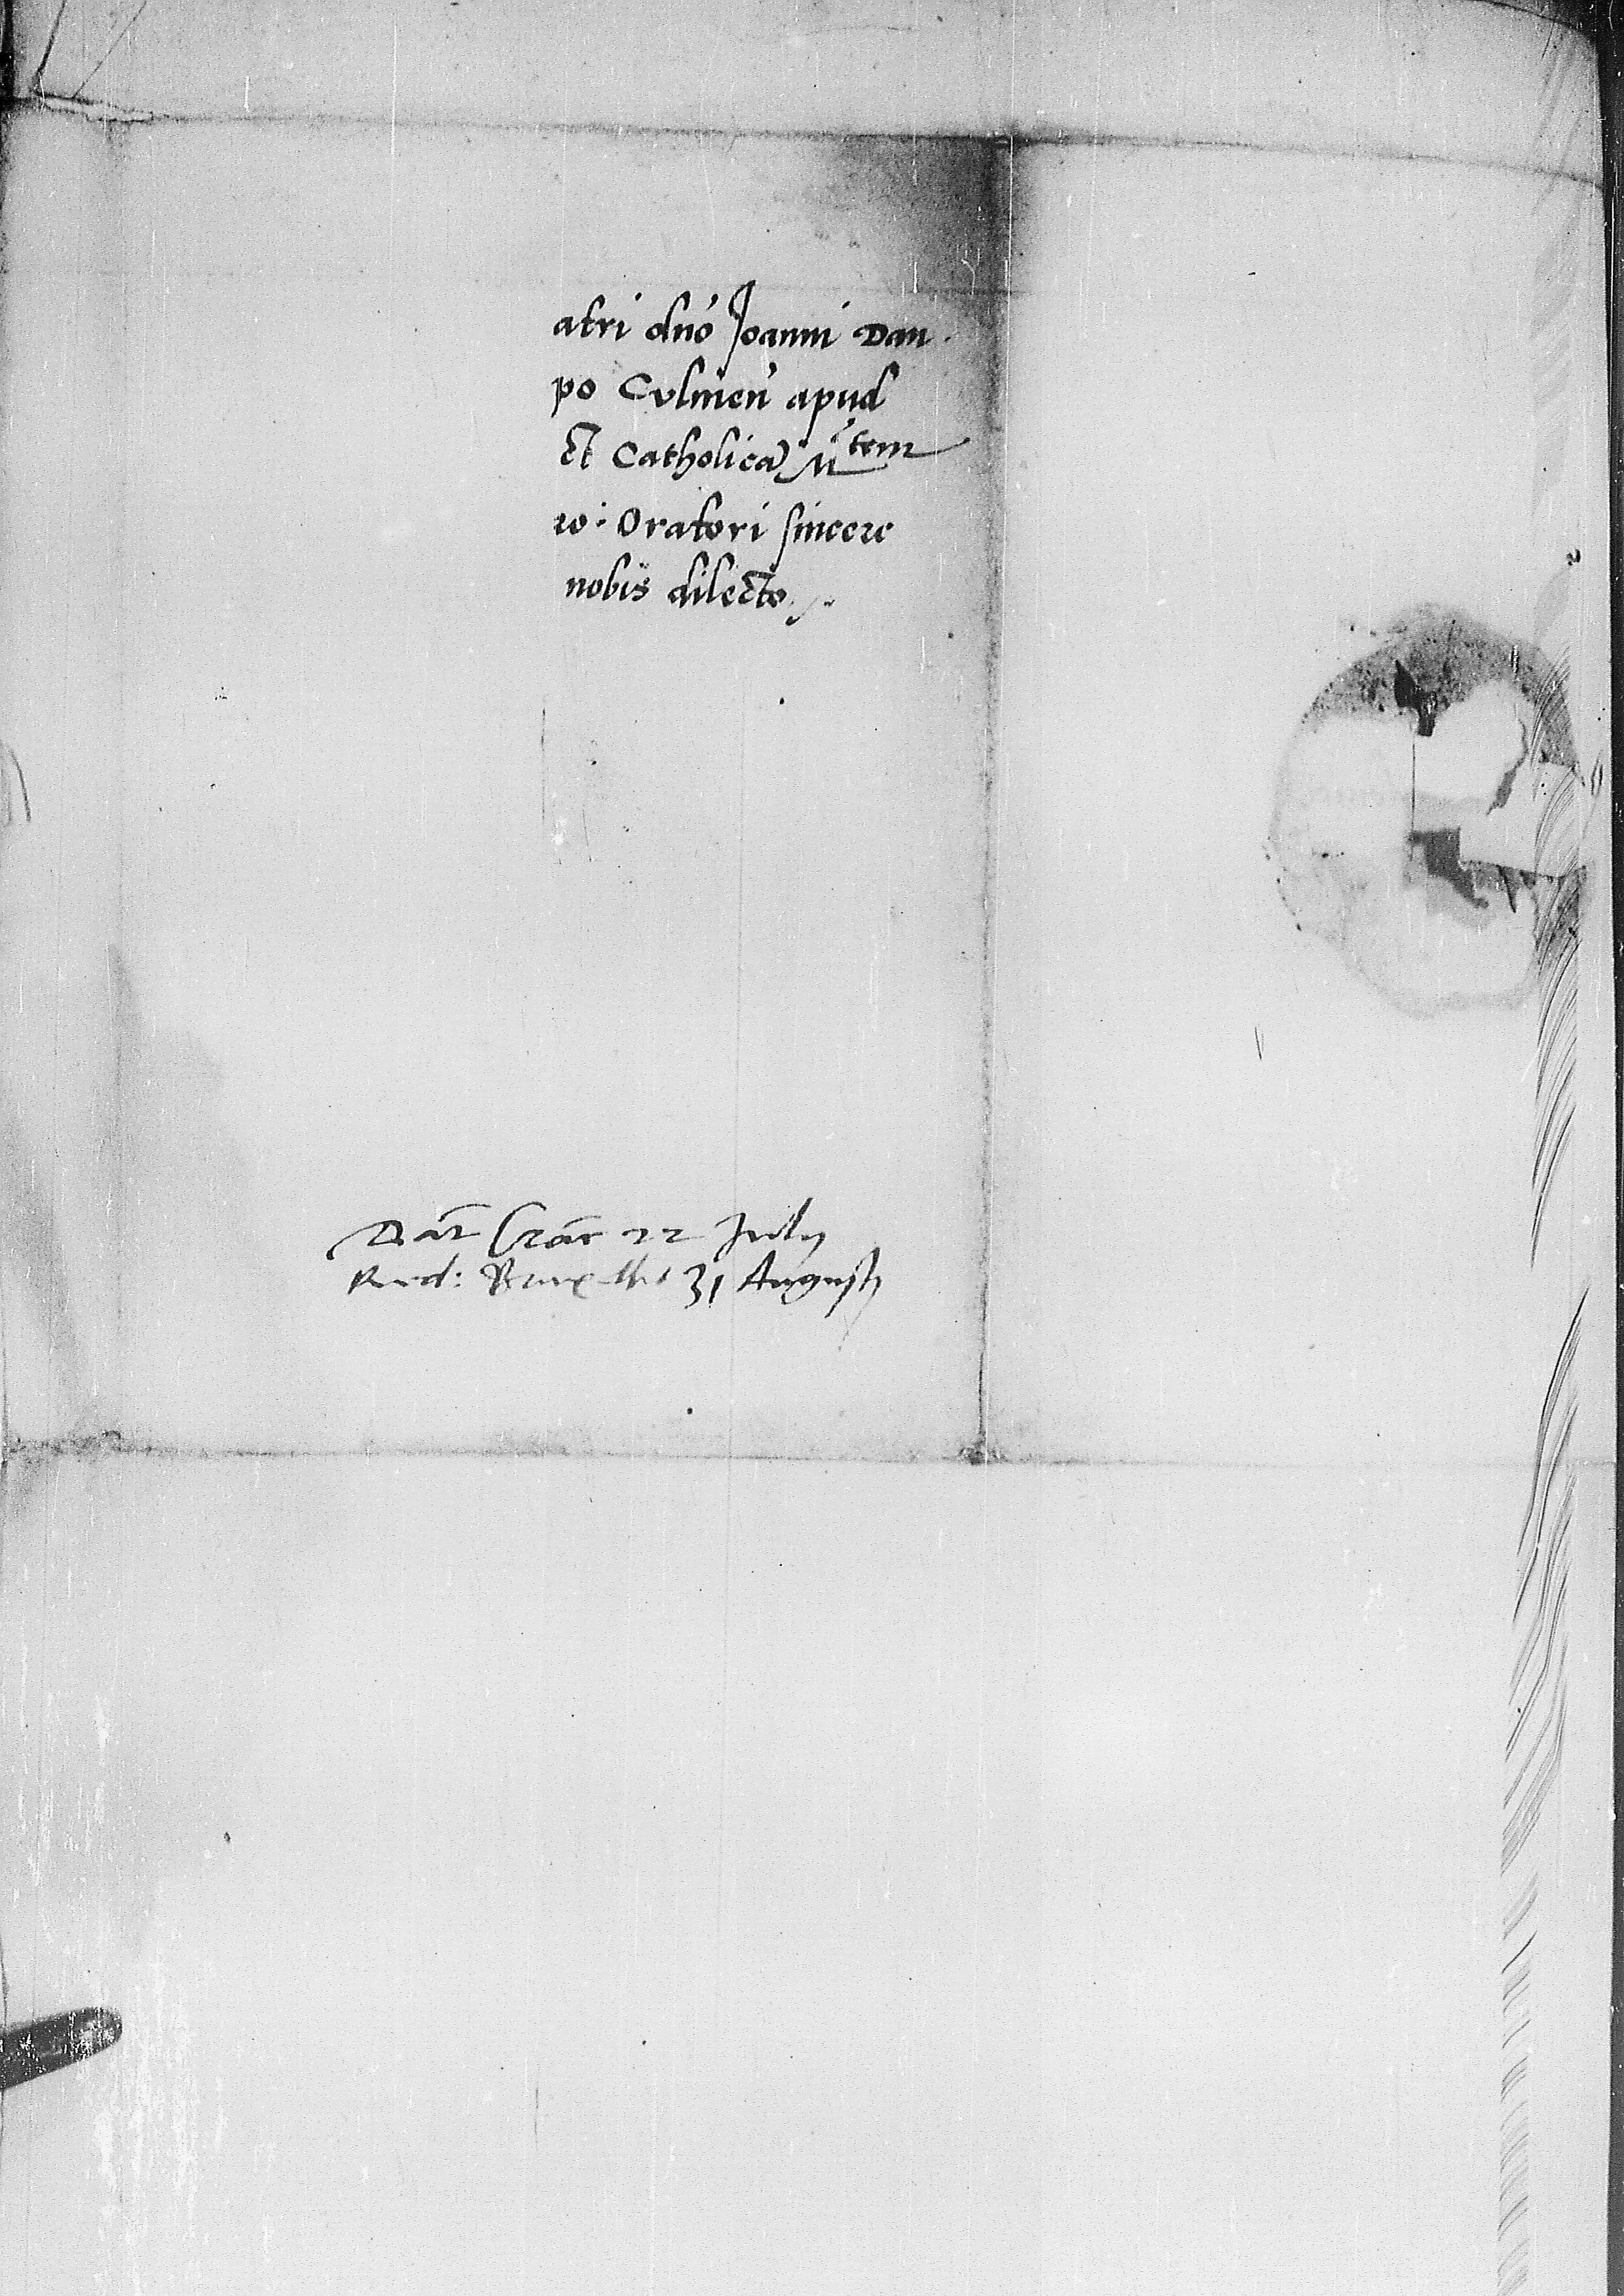 atri dnó Joanni Dan
po Culmeń apud
et Catholicā Mtem
ro: Oratori sincere
nobis dilecto
Dat Crac 22 July
Red: Bruxellis 31 Augusti